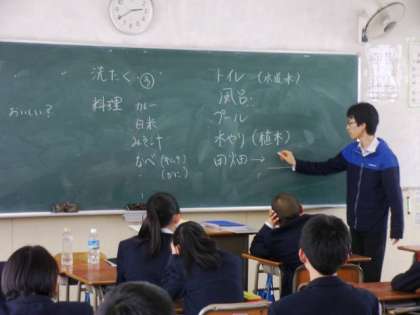 洗たく ③
おいしい？
料理 カレー
白米
みそ汁
なべ (キムチ)
(かに)
トイレ (水道水)
風呂
プール
水やり (植木)
田畑 →